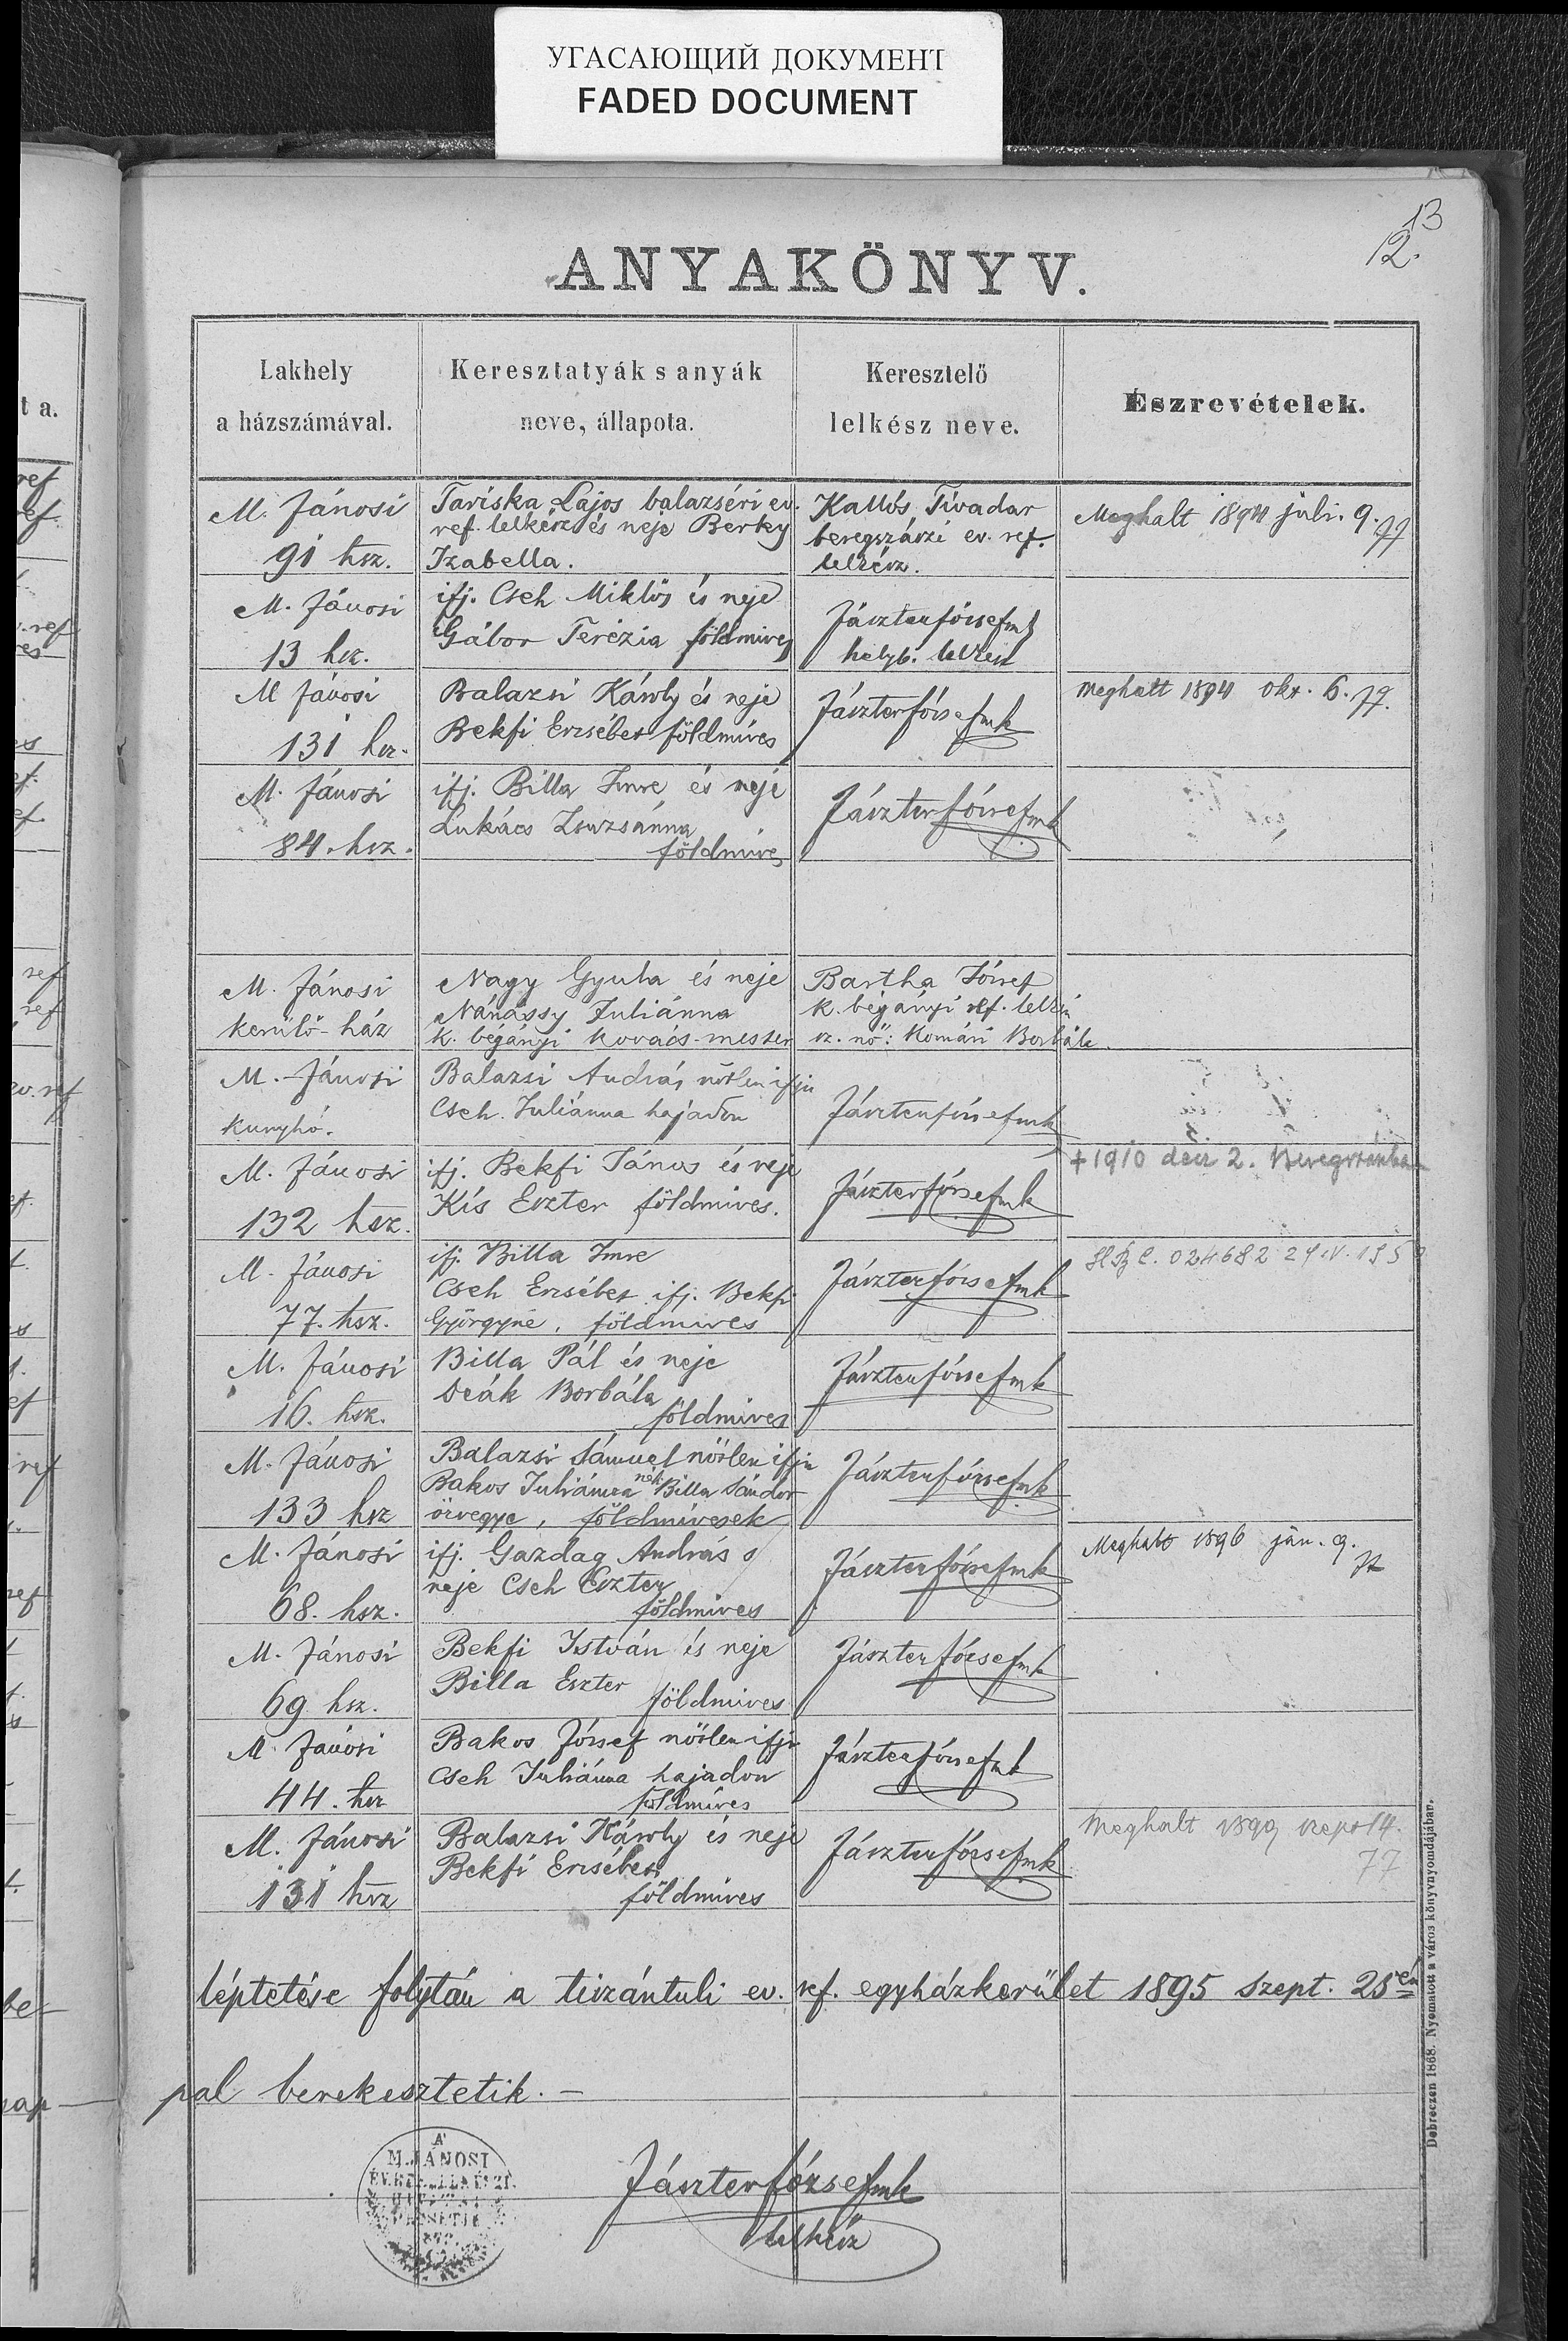 УГАСАЮЩИЙ ДОКУМЕНТ
FADED DOCUMENT
13
12.
ANYAKÖNYV.
Lakhely
a házszámával.
Keresztatyák s anyák
neve, állapota.
Keresztelő
lelkész neve.
Észrevételek.
M. Jánosi
91 hsz.
Tariska Lajos balazséri ev.
ref. lelkész és neje Berky
Izabella.
Kallós Tivadar
beregszászi ev. ref.
lelkész.
Meghalt 1894 juli. 9.
M. Jánosi
13 hsz.
ifj. Cseh Miklós és neje
Gábor Terézia földmives
Jászter József mk
helyb. lelkész
M Jánosi
131 hsz.
Balazsi Károly és neje
Bekfi Erzsébet földmíves
Jászter József mk
meghalt 1894 okt. 6.
M. Jánosi
84. hsz.
ifj. Billa Imre és neje
Lukács Zsuzsánna
földmíves
Jászter József mk
M. Jánosi
kerülő-ház
Nagy Gyula és neje
Nánássy Juliánna
k. bégányi kovács-mester
Bartha József
k. bégányi ref. lelkész
sz. nő: Komári Borbála.
M. Jánosi
kunyhó.
Balazsi András nőtlen ifju
Cseh Juliánna hajadon
Jászter József mk
M. Jánosi
132 hsz.
ifj. Bekfi János és neje
Kis Eszter földmives.
Jászter József mk
+ 1910 decz 2. Beregszászban
M. Jánosi
77. hsz.
ifj. Billa Imre
Cseh Erzsébet ifj. Bekfi
Györgyné, földmives
Jászter József mk
024682 29.IV.195
M. Jánosi
16. hsz.
Billa Pál és neje
Deák Borbála
földmives
Jászter József mk
M. Jánosi
133 hsz
Balazsi Sámuel nőtlen ifju
Bakos Juliánna néh. Billa Sándor
özvegye, földmívesek
Jászter József mk
M. Jánosi
68. hsz.
ifj. Gazdag András s
neje Cseh Eszter
földmives
Jászter József mk
Meghalt 1896 ján. 9.
M. Jánosi
69 hsz.
Bekfi István és neje
Billa Eszter
földmives
Jászter József mk
M. Jánosi
44. hsz
Bakos József nőtlen ifju
Cseh Juliánna hajadon
földmíves
Jászter József mk
M. Jánosi
131 hsz
Balazsi Károly és neje
Bekfi Erzsébet
földmíves
Jászter József mk
Meghalt 1899 szept 14.
77
léptetése folytán a tiszántuli ev. ref. egyházkerület 1895 szept. 25én
pal berekesztetik. –
A
M. JÁNOSI
Jászter József mk
lelkész
Debreczen 1868. Nyomatott a város könyvnyomdájában.